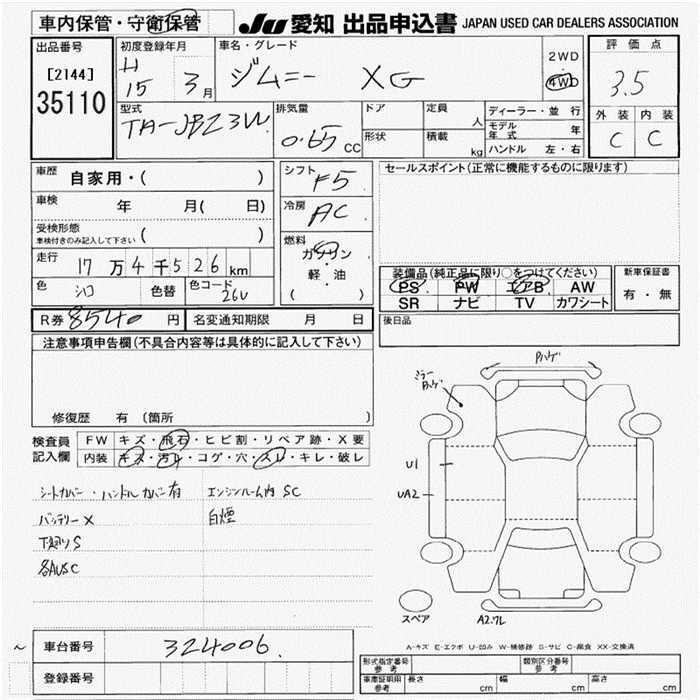 車内保管・守衛保管
JU 愛知 出品申込書 JAPAN USED CAR DEALERS ASSOCIATION
出品番号
[2144]
35110
初度登録年月
H
15 3月
車名・グレード
ジムニー XG
2WD
4WD
評価点
3.5
外装 内装
C C
型式
TA-JB23W
排気量
0.65 CC
ドア
定員 人
形状
積載 kg
ディーラー・並行
モデル年式 年
ハンドル 左・右
車歴 自家用・( )
車検 年 月( 日)
受検形態
車検付きのみ記入して下さい ( )
走行 17万4千526km
色 シロ 色替 色コード 26U
シフト F5
冷房 AC
燃料
ガソリン
軽・油
( )
セールスポイント(正常に機能するものに限ります)
装備品(純正品に限り○をつけてください)
PS PW エアB AW
SR ナビ TV カワシート
新車保証書
有・無
R券 8540 円 名変通知期限 月 日
後日品
注意事項申告欄(不具合内容等は具体的に記入して下さい)
修復歴 有 (箇所
検査員記入欄
FW キズ・飛石・ヒビ割・リペア跡・X要
内装 キズ・汚レ・コゲ・穴・スレ・キレ・破レ
シートカバー・ハンドルカバー有
バッテリーX
下廻りS
各AUSC
エンジンルーム内SC
白煙
Pハゲ
ミラー
Pハゲ
U1
UA2
スペア
A2.ワレ
A-キズ E-エクボ U-凹み W-補修跡 S-サビ C-腐食 XX-交換済
~ 車台番号 324006
登録番号
形式指定番号 参考
類別区分番号 参考
車庫証明用 参考 長さ cm 幅 cm 高さ cm